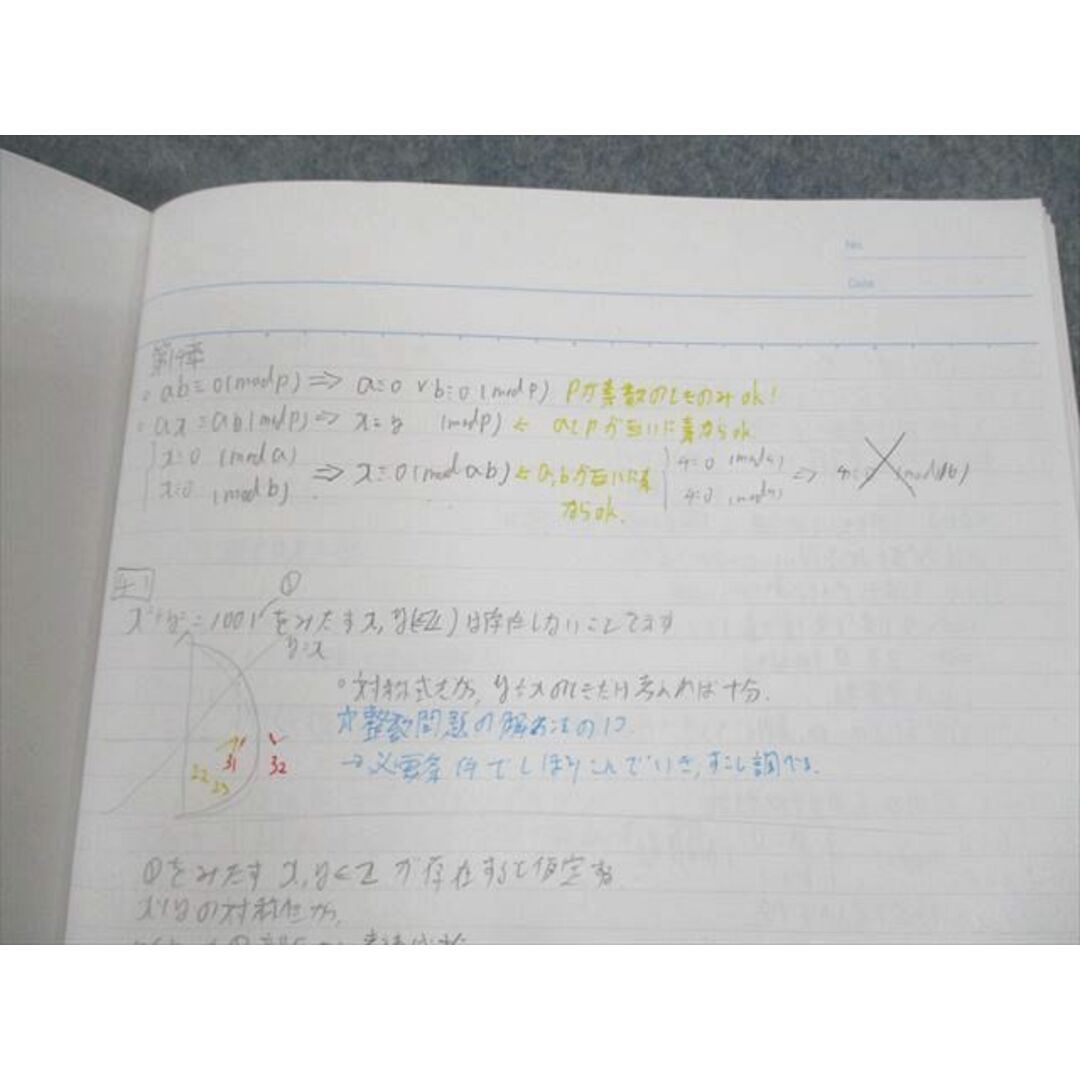 No.
Date
第14章
◦ ab≡0(mod p) ⇒ a≡0 ∨ b≡0 (mod p) Pが素数のときのみok!
◦ ax≡ab(mod p) ⇒ x≡y (mod p) ← aとpが互いに素ならok.
x≡0 (mod a)
x≡0 (mod b) ⇒ x≡0(mod ab) ← a,bが互いに素
ならok.
4≡0
4≡0 ⇒
4-1
①
x²+y²=1001 をみたすx,y(∈Z)は存在しないことを示す
y=x
◦対称式だから, y≦xのときだけ考えれば十分.
☆整数問題の解法の1つ
→必要条件でしぼりこんでいき,すこし調べる.
31
32
22
23
①をみたす x,y∈Z が存在すると仮定する
xとyの対称性から,